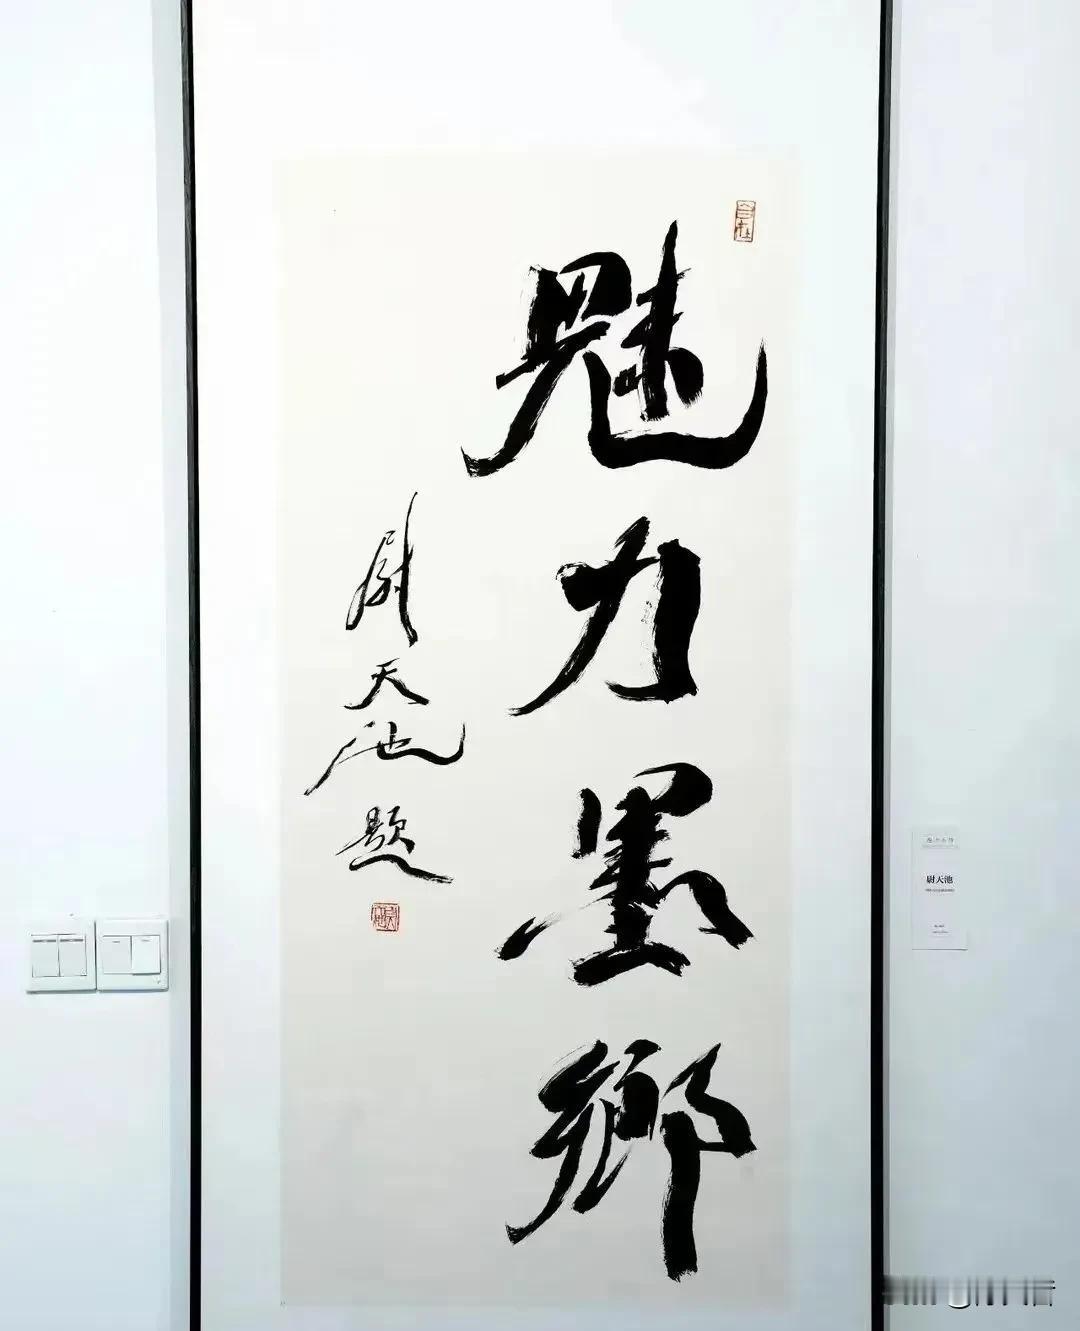 魅力墨鄉
尉天池題
尉天池